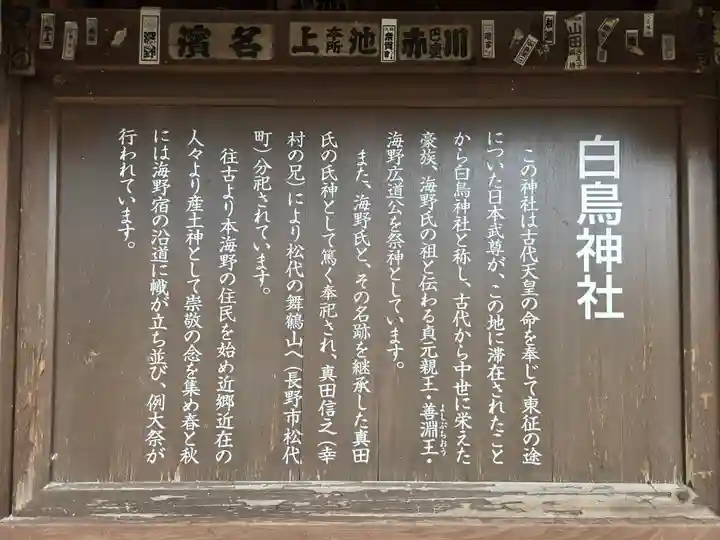 白鳥神社
この神社は古代天皇の命を奉じて東征の途
についた日本武尊が、この地に滞在されたこと
から白鳥神社と称し、古代から中世に栄えた
豪族、海野氏の祖と伝わる貞元親王・善淵王・
よしぶちおう
海野広道公を祭神としています。
また、海野氏と、その名跡を継承した真田
氏の氏神として篤く奉祀され、真田信之(幸
村の兄)により松代の舞鶴山へ(長野市松代
町)分祀されています。
往古より本海野の住民を始め近郷近在の
人々より産土神として崇敬の念を集め春と秋
には海野宿の沿道に幟が立ち並び、例大祭が
行われています。
濱名
上
本所
池
赤
川
山田